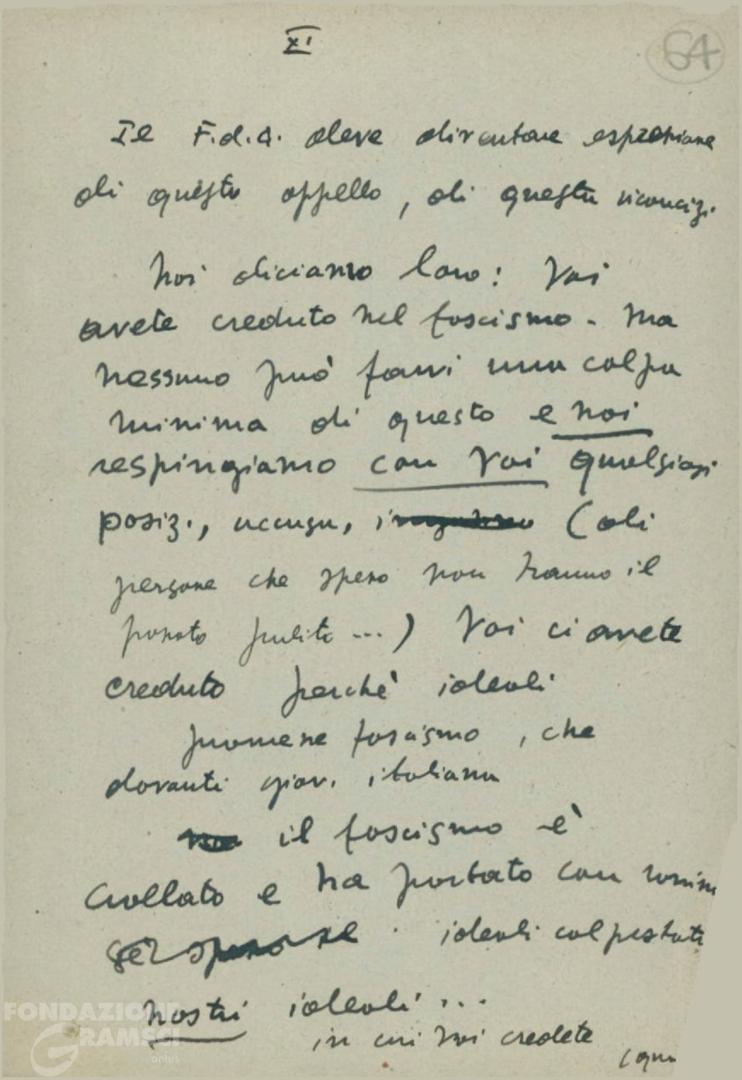 XI
64
Il F.d.G. deve diventare espressione
di questo appello, di questa riconciz.
Noi diciamo loro: Voi
avete creduto nel fascismo. Ma
nessuno può farvi una colpa
minima di questo e noi
respingiamo con voi qualsiasi
posiz., accusa, (di
persone che spesso non hanno il
passato pulito...) Voi ci avete
creduto perchè ideali
promesse fascismo, che
davanti giov. italiana
il fascismo è
crollato e ha portato con
ideali calpestati
nostri ideali...
in cui voi credete
FONDAZIONE
GRAMSCI
onlus